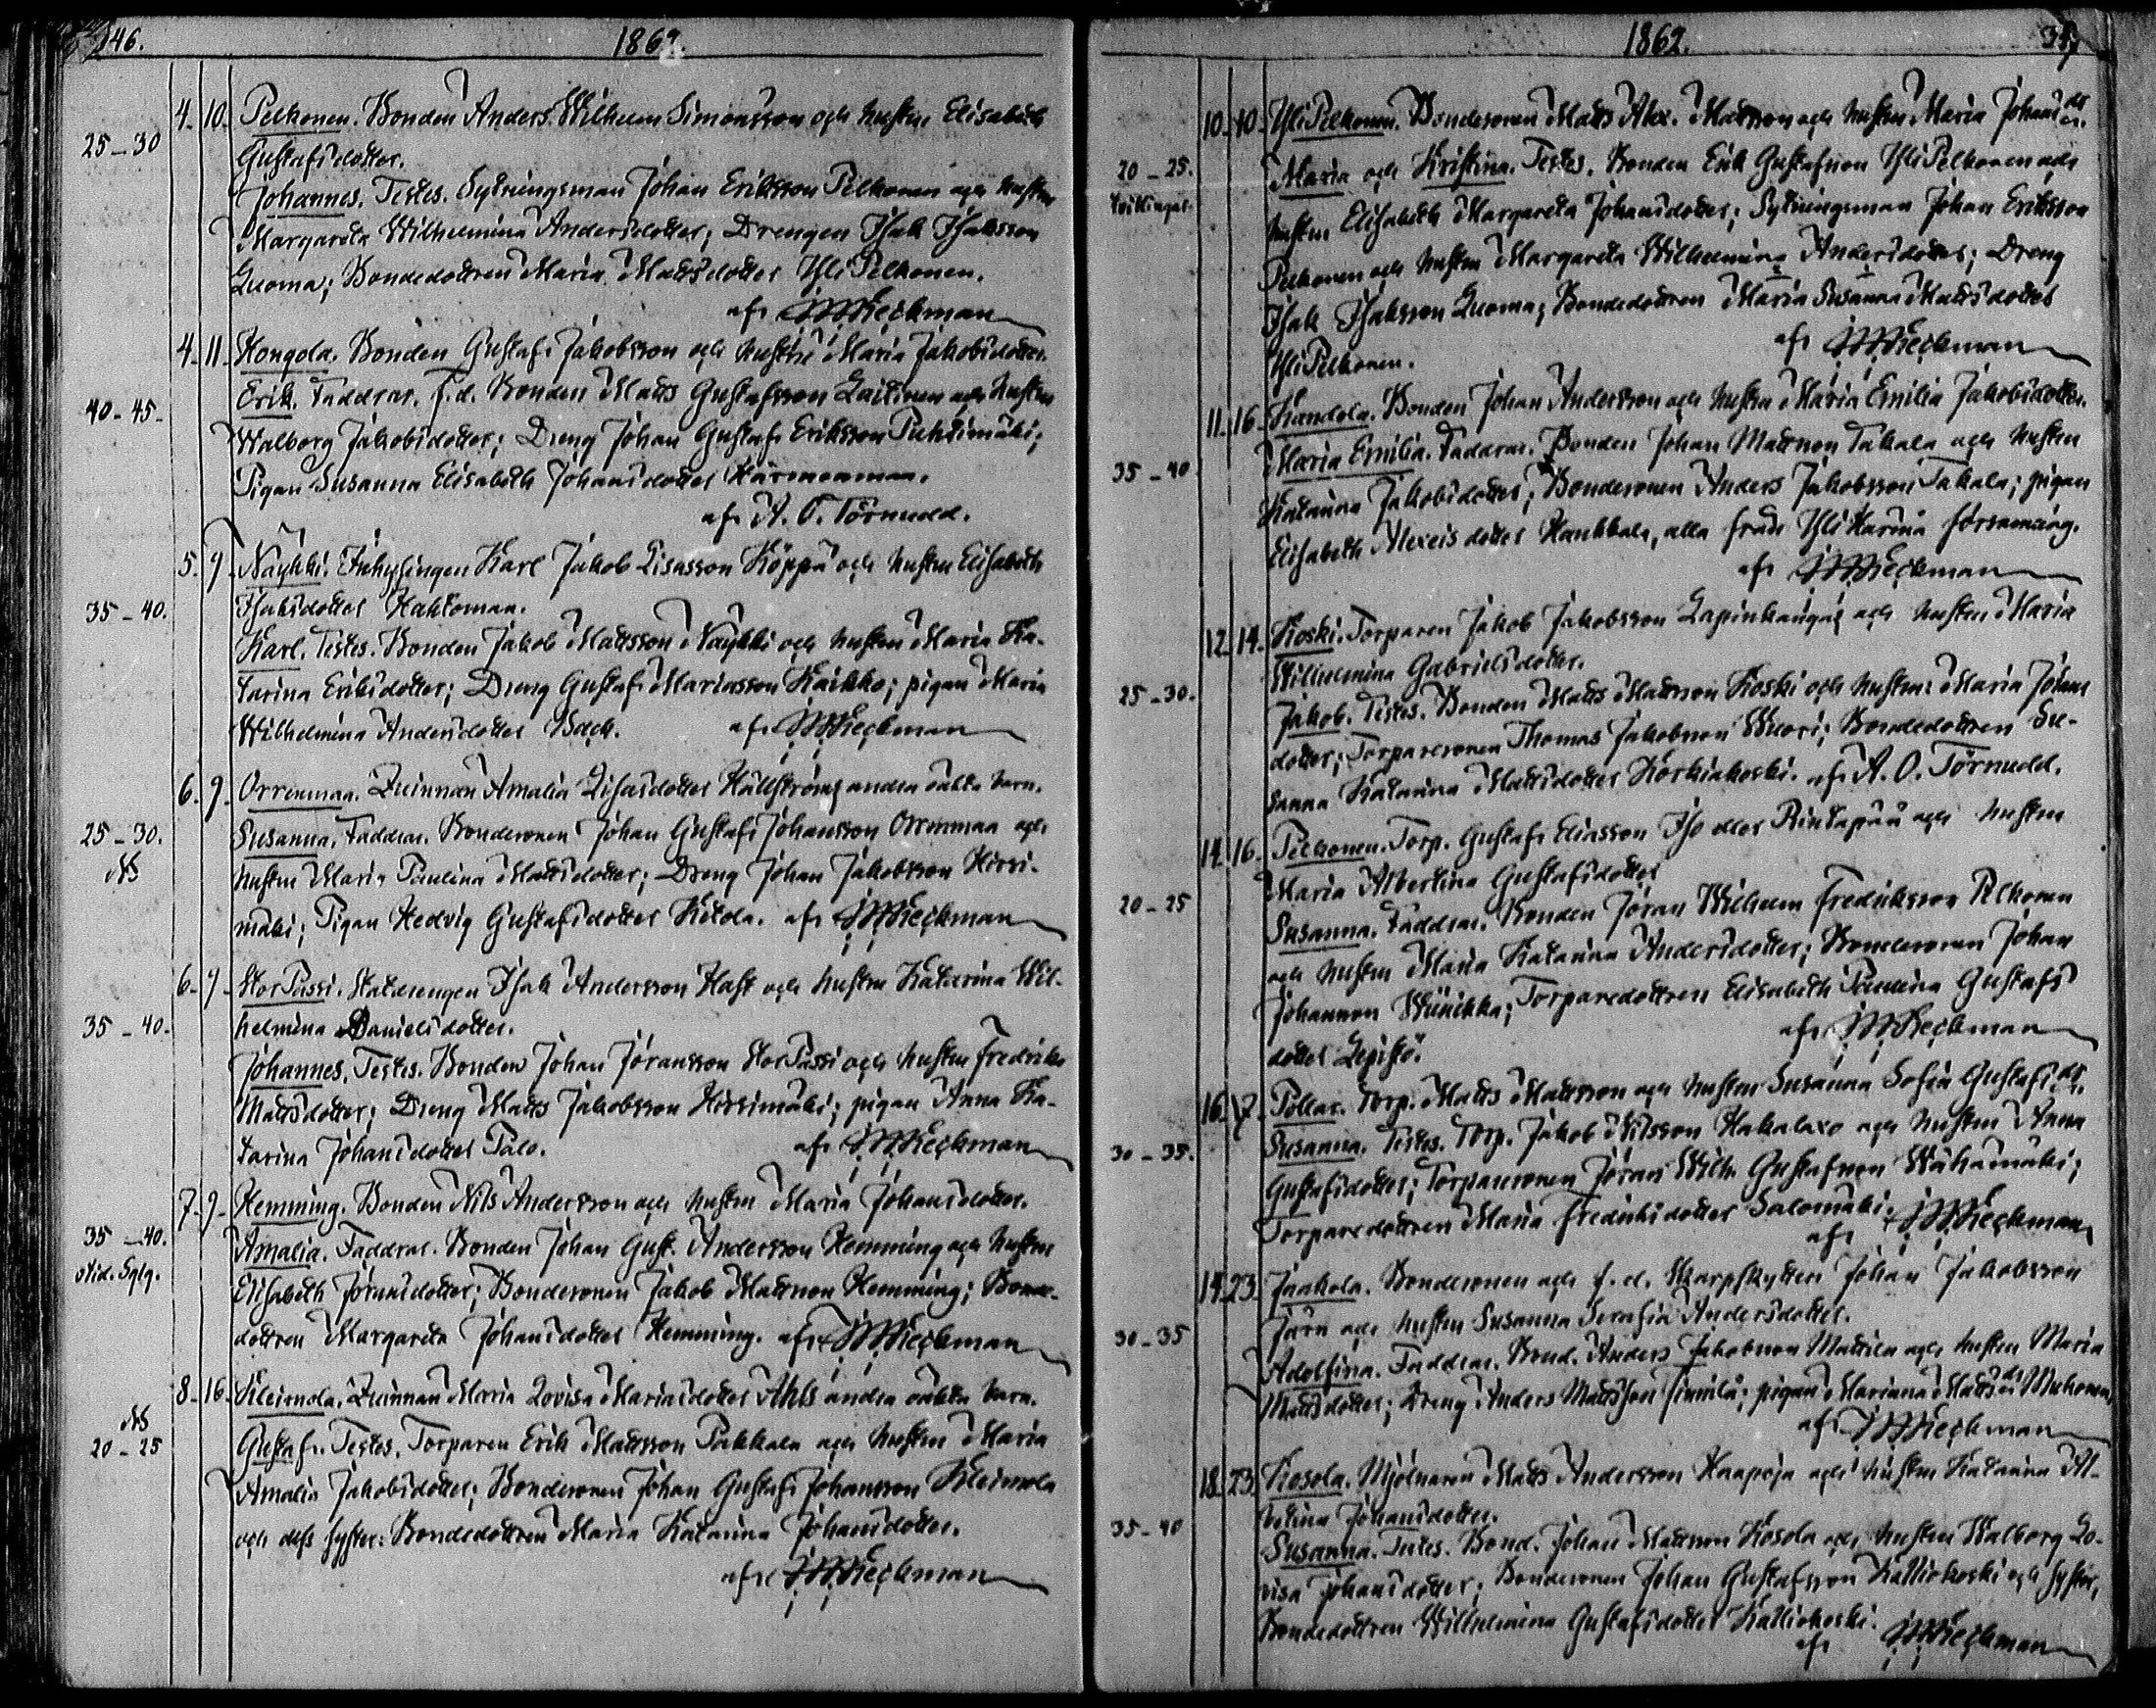 146.
1862.
4. 10. Pelkonen. Bonden Anders Wilhelm Simonsson och hustru Elisabeth
25-30 Gustafsdotter.
Johannes. Testes. Sytningsman Johan Eriksson Pelkonen och hustru
Margareta Wilhelmina Andersdotter; Drengen Isak Isaksson
Luoma; Bondedottren Maria Mattsdotter Yli Pelkonen.
af
4. 11. Kongola. Bonden Gustaf Jakobsson och hustru Maria Jakobsdotter.
Erik. Faddrar. f.d. Bonden Matts Gustafsson Laitinen och hustru
40-45. Walborg Jakobsdotter; Dreng Johan Gustaf Eriksson Puhtimäki;
Pigan Susanna Elisabeth Johansdotter Härmenmaa.
af A. O. Törnudd.
5. 9. Näykki. Inhysingen Karl Jakob Lisasson Köppä och hustru Elisabeth
35-40. Isaksdotter Hahtomaa.
Karl. Testes. Bonden Jakob Mattsson Näykki och hustru Maria Ka-
tarina Eriksdotter; Dreng Gustaf Mariasson Kaikko; pigan Maria
Wilhelmina Andersdotter Back. af
6. 9. Orrenmaa. Qvinnan Amalia Lisasdotter Hällströms andra oäkta barn.
25-30. Susanna. Faddrar. Bondesonen Johan Gustaf Johansson Orrenmaa och
hustru Maria Paulina Mattsdotter; Dreng Johan Jakobsson Hirsi-
mäki; Pigan Hedvig Gustafsdotter Ketola. af
6. 9. Stor Passi. Statdrengen Isak Andersson Hast och hustru Katarina Wil-
35-40. helmina Danielsdotter.
Johannes. Testes. Bonden Johan Jöransson Stor Passi och hustru Fredrika
Mattsdotter; Dreng Matts Jakobsson Hirsimäki; pigan Anna Ka-
tarina Johansdotter Palo. af
7. 9. Hemming. Bonden Nils Andersson och hustru Maria Johansdotter.
35-40. Amalia. Faddrar. Bonden Johan Gust. Andersson Hemming och hustru
Elisabeth Jöransdotter; Bondesonen Jakob Mattsson Hemming; Bonde-
dottren Margareta Johansdotter Hemming. af
8. 16. Kleimola. Qvinnan Maria Lovisa Mariasdotter Ahls andra oäkta barn.
20-25 Gustaf. Testes. Torparen Erik Mattsson Pakkala och hustru Maria
Amalia Jakobsdotter; Bondesonen Johan Gustaf Johansson Kleimola
och dess syster: Bondedottren Maria Katarina Johansdotter.
af
1862.
10. 10. Yli Pelkonen. Bondesonen Matts Alex. Mattsson och hustru Maria Johans dr.
20-25. Maria och Kristina. Testes. Bonden Erik Gustafsson Yli Pelkonen och
Tvillingar. hustru Elisabeth Margareta Johansdotter; Sytningsman Johan Eriksson
Pelkonen och hustru Margareta Wilhelmina Andersdotter; Dreng
Isak Isaksson Luoma; Bondedottren Maria Susanna Mattsdotter
Yli Pelkonen. af
11. 16. Kandola. Bonden Johan Andersson och hustru Maria Emilia Jakobsdotter.
35-40 Maria Emilia. Faddrar. Bonden Johan Mattsson Takala och hustru
Katarina Jakobsdotter; Bondesonen Anders Jakobsson Takala; pigan
Elisabeth Alexeisdotter Hankkala, alla från Yli Härmä församling.
af
12. 14. Koski. Torparen Jakob Jakobsson Lapinkangas och hustru Maria
Wilhelmina Gabrielsdotter.
25-30. Jakob. Testes. Bonden Matts Mattsson Koski och hustru Maria Johans
dotter; Torparesonen Thomas Jakobsson Wuori; Bondedottren Su-
sanna Katarina Mattsdotter Korkiakoski. af A. O. Törnudd.
14. 16. Pelkonen. Torp. Gustaf Eliasson Iso eller Rintapää och hustru
20-25 Maria Albertina Gustafsdotter
Susanna. Faddrar. Bonden Jöran Wilhelm Fredriksson Pelkonen
och hustru Maria Katarina Andersdotter; Bondesonen Johan
Johansson Wiinikka; Torparedottren Elisabeth Paulina Gustafs
dotter Lepistö. af
16. 17. Pollar. Torp. Matts Mattsson och hustru Susanna Sofia Gustafs dr.
30-35. Susanna. Testes. Torp. Jakob Nilsson Hakalaxo och hustru Anna
Gustafsdotter; Torparesonen Jöran Wilh. Gustafsson Wähämäki;
Torparedottren Maria Fredriksdotter Salomäki.
af
14. 23. Jaakola. Bondesonen och f.d. Skarpskytten Johan Jakobsson
30-35 Järn och hustru Susanna Serafia Andersdotter.
Adolfina. Faddrar. Bond. Anders Jakobsson Mattila och hustru Maria
Mattsdotter; Dreng Anders Mattsson; pigan Mariana Matts dr
af
18. 23. Kosola. Mjölnaren Matts Andersson Haapoja och hustru Katarina Al-
bertina Johansdotter.
35-40 Susanna. Testes. Bond. Johan Mattsson Kosola och hustru Walborg Lo-
visa Johansdotter; Bondesonen Johan Gustafsson Kalliokoski och syster,
Bondedottren Wilhelmina Gustafsdotter Kalliokoski.
af